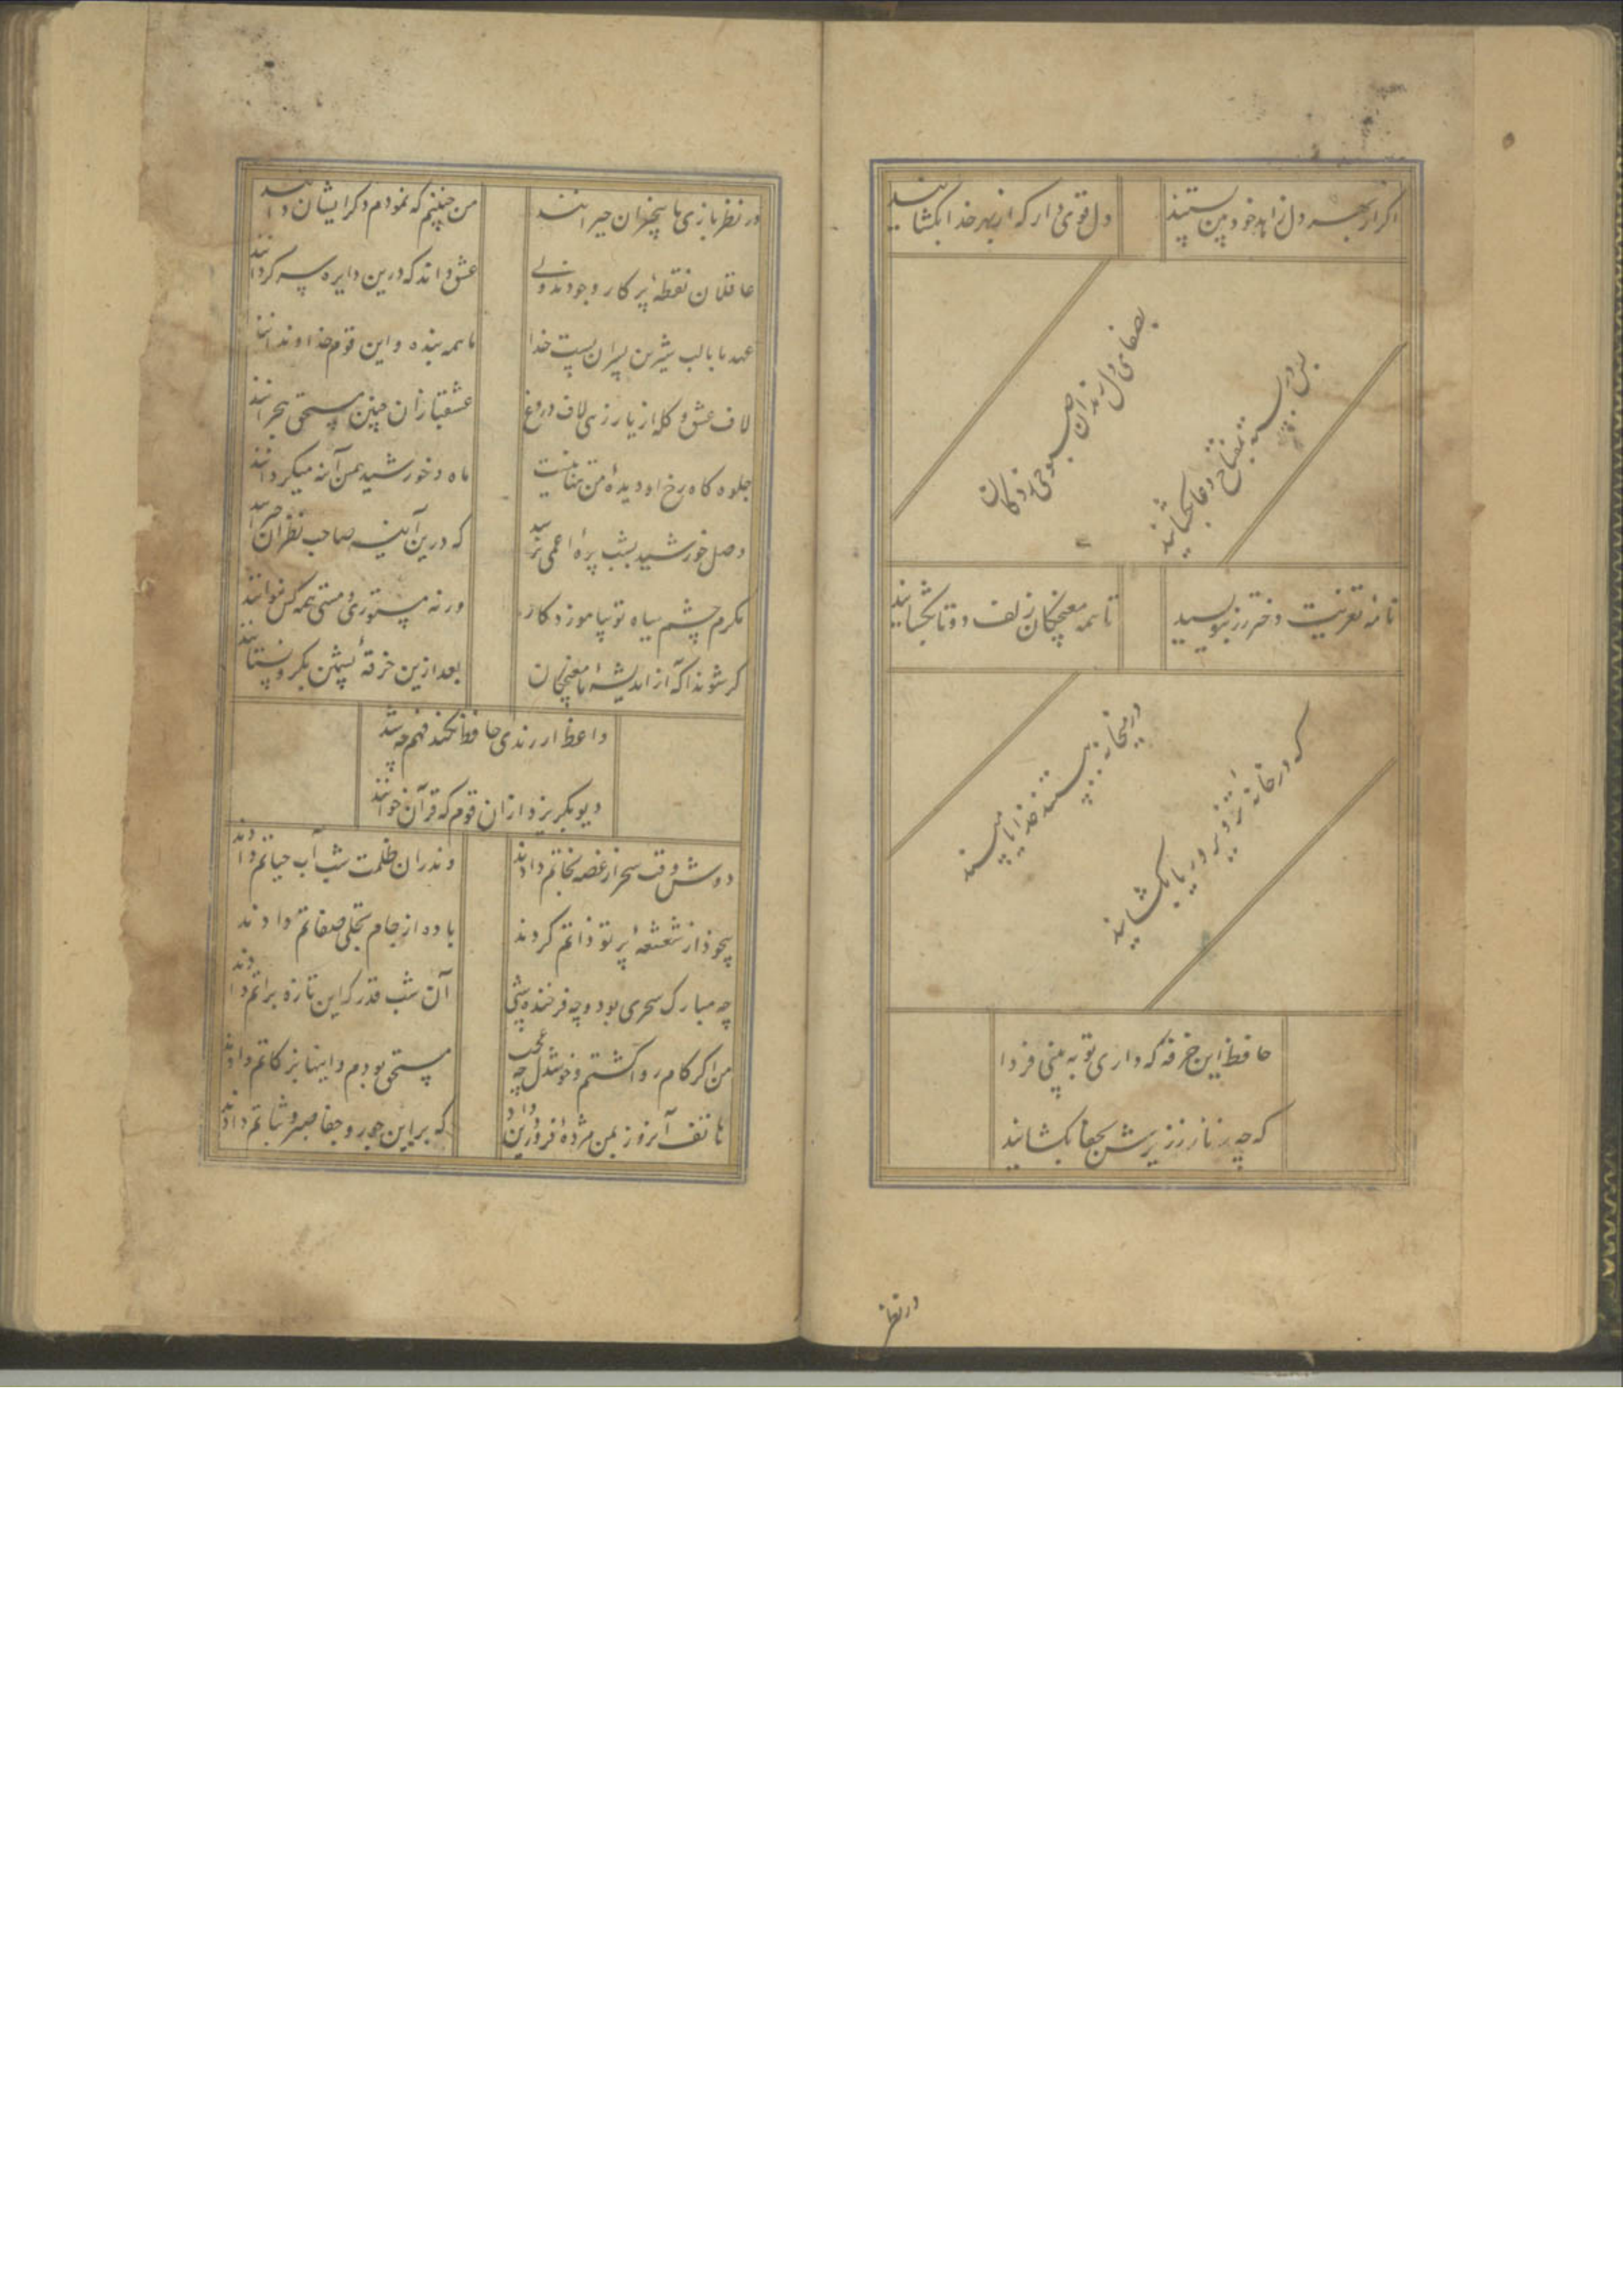 اگر از بهر دل زاهد خودبین بستند
دل قوی دار که از بهر خدا بگشایند
بصفای دل رندان صبوحی زدگان
بس در بسته بمفتاح دعا بگشایند
نامه تعزیت دختر رز بنویسید
تا همه مغبچکان زلف دوتا بگشایند
در میخانه ببستند خدایا مپسند
که در خانه تزویر و ریا بگشایند
حافظ این خرقه که داری تو به بینی فردا
که چه زنار ز زیرش بجفا بگشایند
در نظر
در نظربازی ما بیخبران حیرانند
من چنینم که نمودم دگر ایشان دانند
عاقلان نقطهٔ پرگار وجودند ولی
عشق داند که درین دایره سرگردانند
عهد ما با لب شیرین پسران بست خدا
ما همه بنده و این قوم خداوندانند
لاف عشق و گله از یار زهی لاف دروغ
عشقبازان چنین مستحق هجرانند
جلوه گاه رخ او دیدهٔ من تنها نیست
ماه و خورشید همین آینه میگردانند
وصل خورشید بشب پرهٔ اعمی نرسد
که درین آینه صاحب نظران حیرانند
مگرم چشم سیاه تو بیاموزد کار
ورنه مستوری و مستی همه کس نتوانند
گر شوند آگه از اندیشهٔ ما مغبچگان
بعد ازین خرقهٔ پشمین بگرو نستانند
واعظ ار رندی حافظ نکند فهم چه شد
دیو بگریزد ازان قوم که قرآن خوانند
دوش وقت سحر از غصه نجاتم دادند
وندران ظلمت شب آب حیاتم دادند
بیخود از شعشعهٔ پرتو ذاتم کردند
باده از جام تجلی صفاتم دادند
چه مبارک سحری بود و چه فرخنده شبی
آن شب قدر که این تازه براتم دادند
من اگر کام روا گشتم و خوشدل چه عجب
مستحق بودم و اینها بزکاتم دادند
هاتف آنروز بمن مژدهٔ این داد
که برین جور و جفا صبر و ثباتم دادند